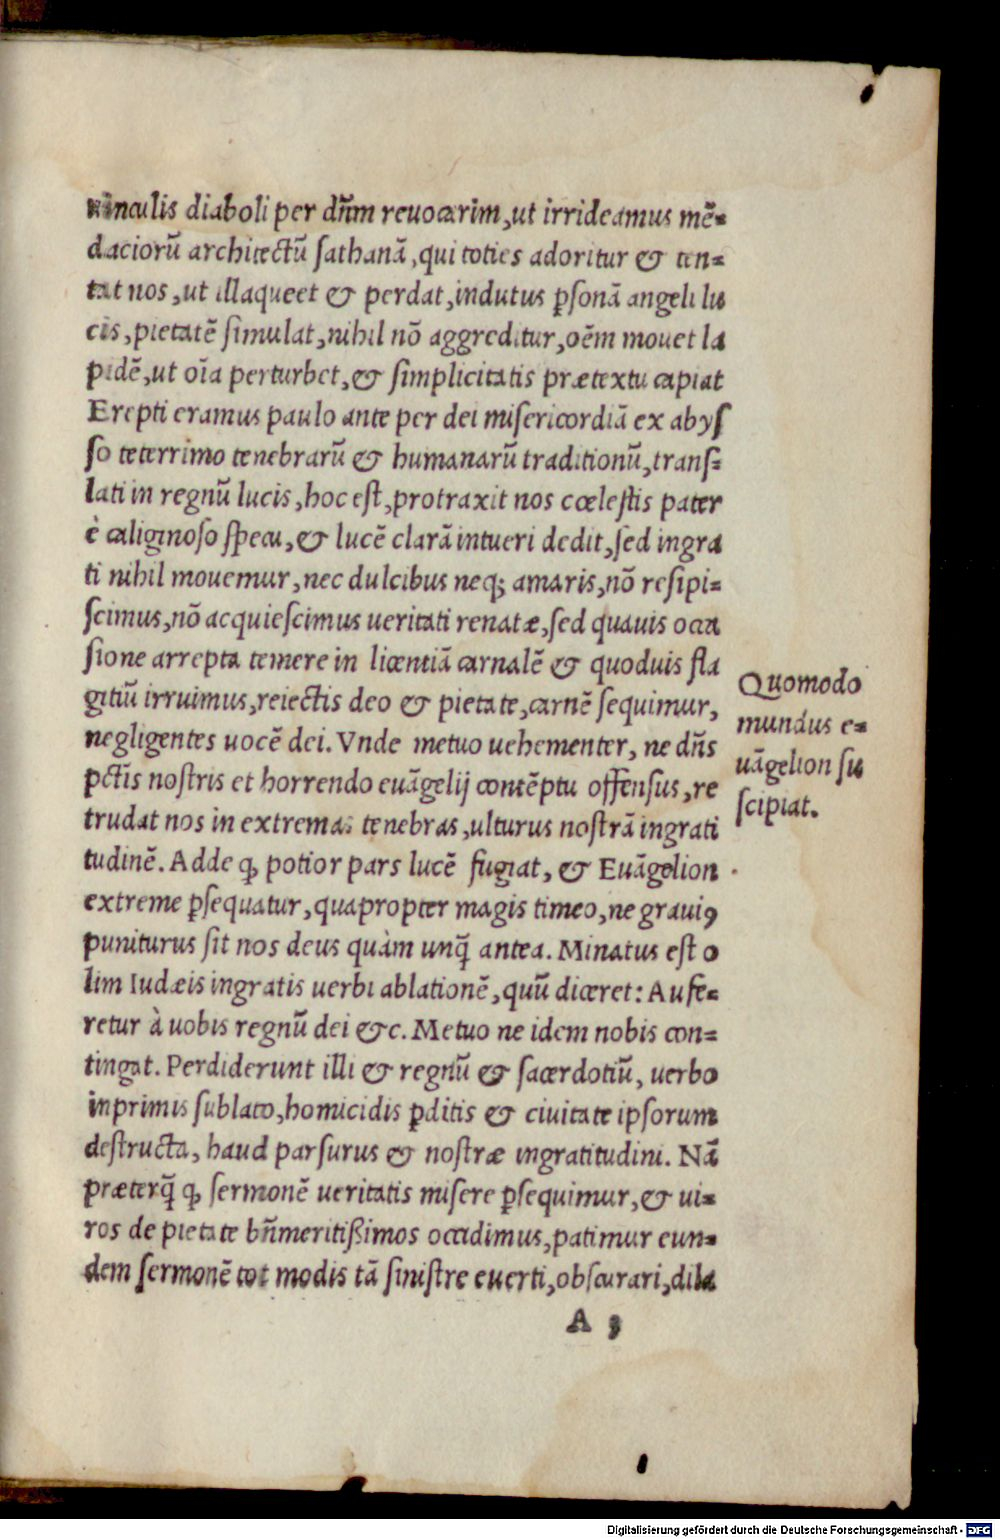 uinculis diaboli per dn̄m reuocarim, ut irrideamus mē-
daciorū architectū sathanā, qui toties adoritur & ten-
tat nos, ut illaqueet & perdat, indutus ꝑsonā angeli lu
cis, pietatē simulat, nihil nō aggreditur, oēm mouet la
pidē, ut oīa perturbet, & simplicitatis prætextu capiat
Erepti eramus paulo ante per dei misericordiā ex abyſ
ſo teterrimo tenebrarū & humanarū traditionū, tranſ-
lati in regnū lucis, hoc eſt, protraxit nos cœleſtis pater
è caliginoſo ſpecu, & lucē clarā intueri dedit, ſed ingra
ti nihil mouemur, nec dulcibus neq; amaris, nō reſipi-
ſcimus, nō acquieſcimus ueritati renatæ, ſed quauis occa
ſione arrepta temere in licentiā carnalē & quoduis fla
gitiū irruimus, reiectis deo & pietate, carnē ſequimur,
negligentes uocē dei. Vnde metuo uehementer, ne dn̄s
pctīs noſtris et horrendo euāgelij contēptu offenſus, re
trudat nos in extremas tenebras, ulturus noſtrā ingrati
tudinē. Adde ꝙ potior pars lucē fugiat, & Euāgelion
extreme ꝑſequatur, quapropter magis timeo, ne grauiꝰ
puniturus ſit nos deus quàm unq̄ antea. Minatus eſt o
lim Iudæis ingratis uerbi ablationē, quū diceret: Aufe-
retur à uobis regnū dei &c. Metuo ne idem nobis con-
tingat. Perdiderunt illi & regnū & ſacerdotiū, uerbo
inprimis ſublato, homicidis ꝑditis & ciuitate ipſorum
deſtructa, haud parſurus & noſtræ ingratitudini. Nā
præterq̄ ꝙ ſermonē ueritatis miſere ꝑſequimur, & ui-
ros de pietate bn̄meritißimos occidimus, patimur eun-
dem ſermonē tot modis tā ſiniſtre euerti, obſcurari, dila
A 3
Quomodo
mundus e-
uāgelion ſu
ſcipiat.
Digitalisierung gefördert durch die Deutsche Forschungsgemeinschaft - DFG